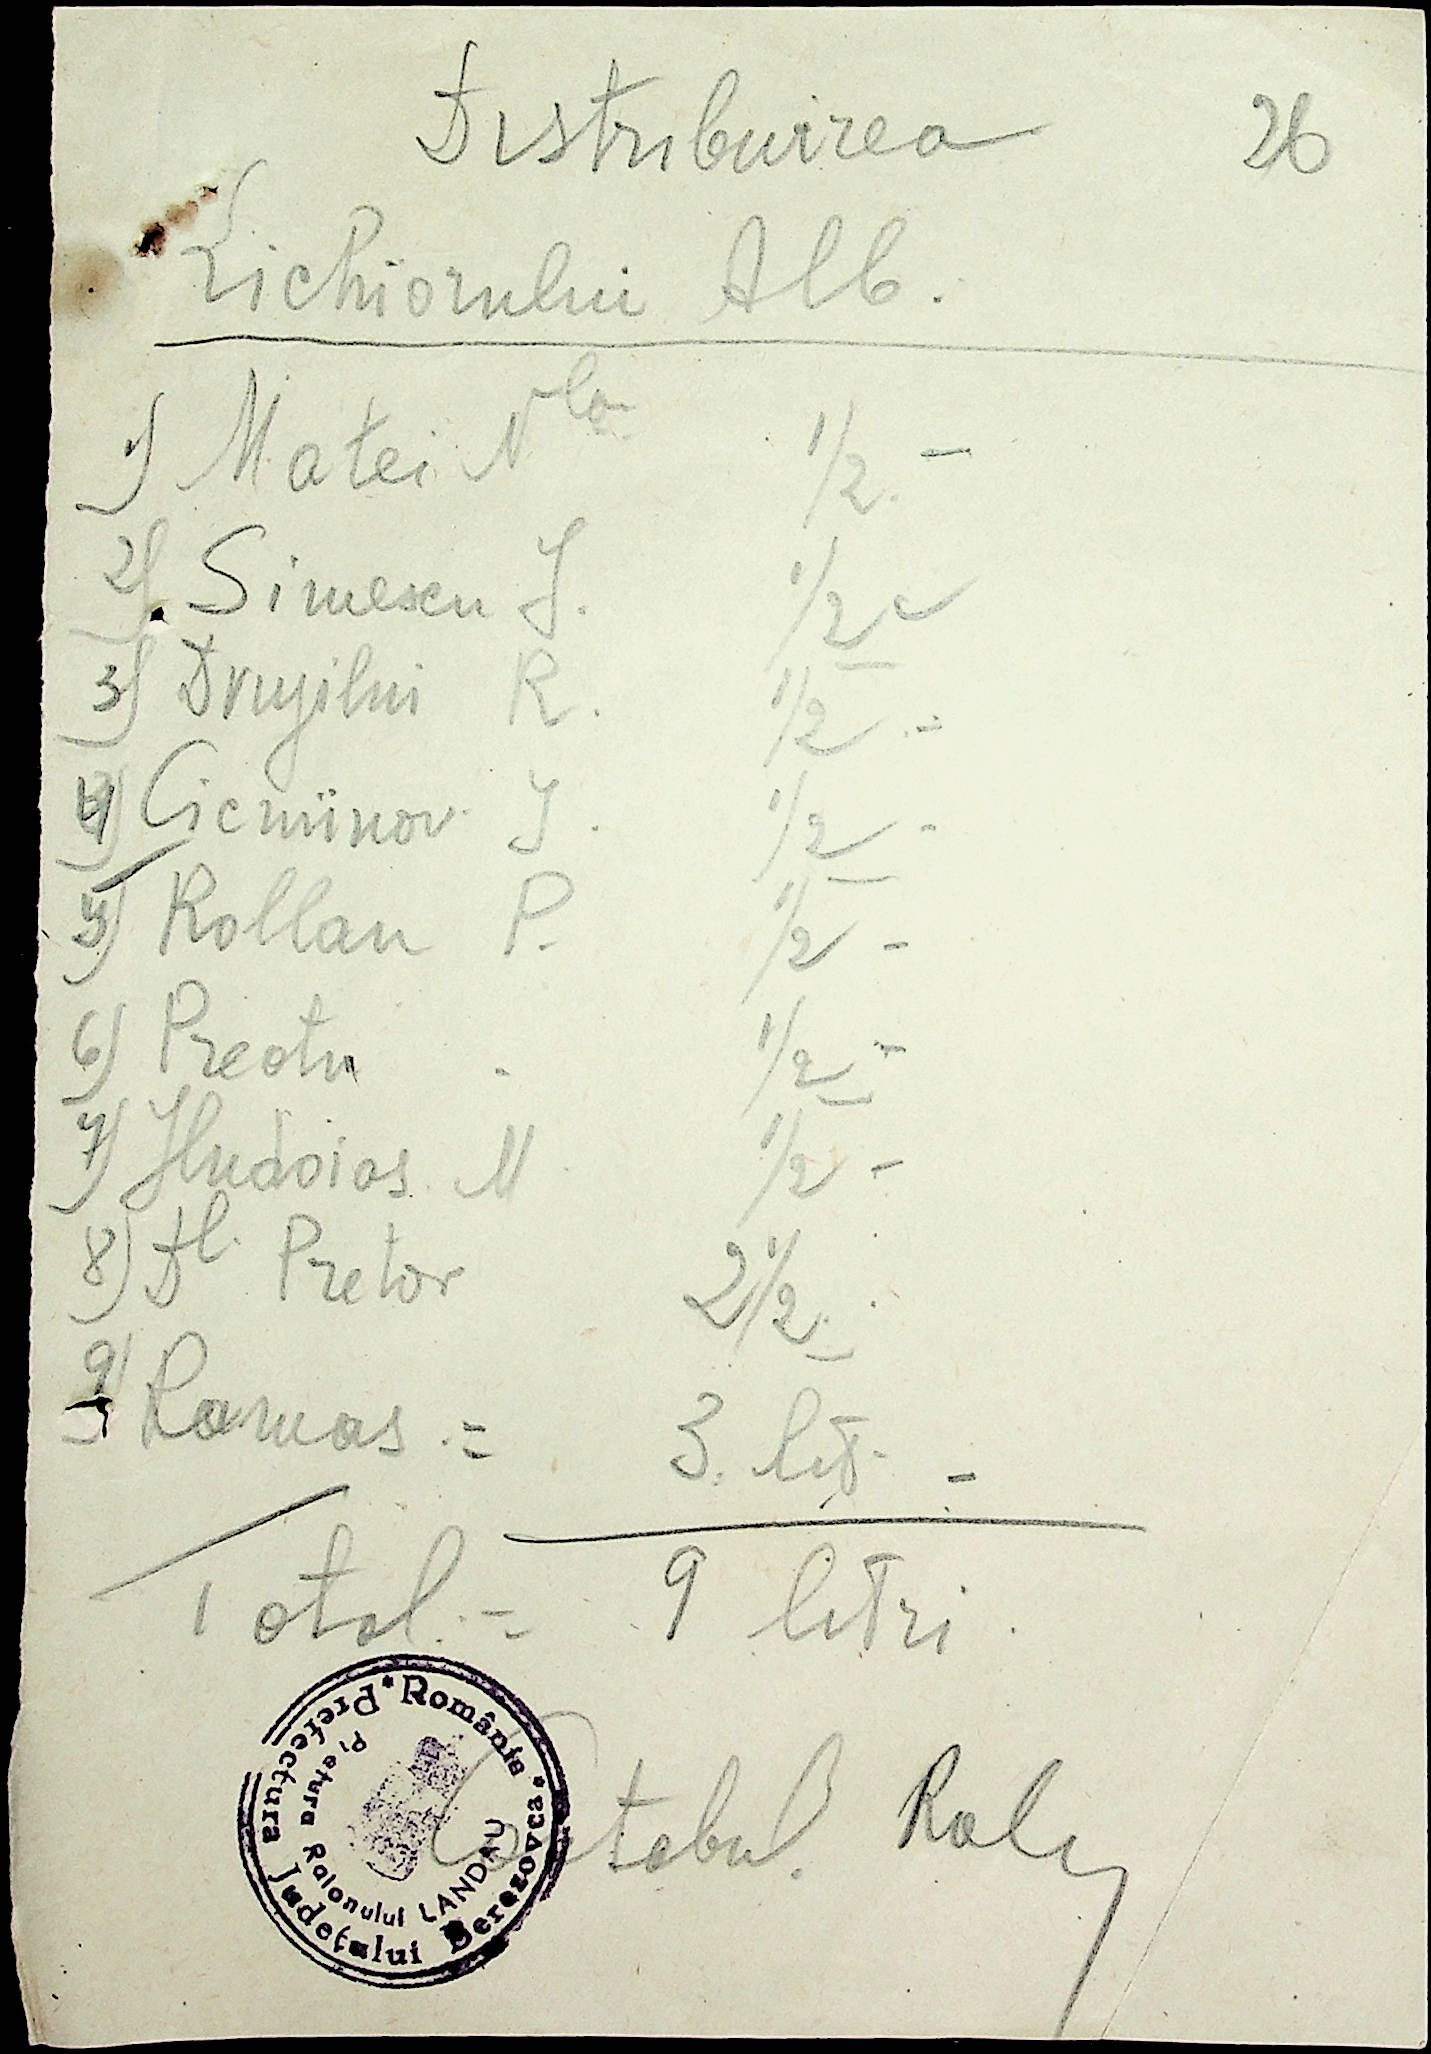 Distribuirea 26
Lichiorului Alb.
1) Matei Nlae 1/2 -
2) Simescu J. 1/2
3) R. 1/2 -
4) J. 1/2 -
5) Rollan P. 1/2 -
6) Preotu . 1/2 -
7) Hudoias M 1/2 -
8) Dl. Pretor 2 1/2
9) Ramas = 3. lit. -
Total = 9 litri.
*România*
Prefectura Județului Berezovca
Pretura Raionului LANDAU
Contabil.